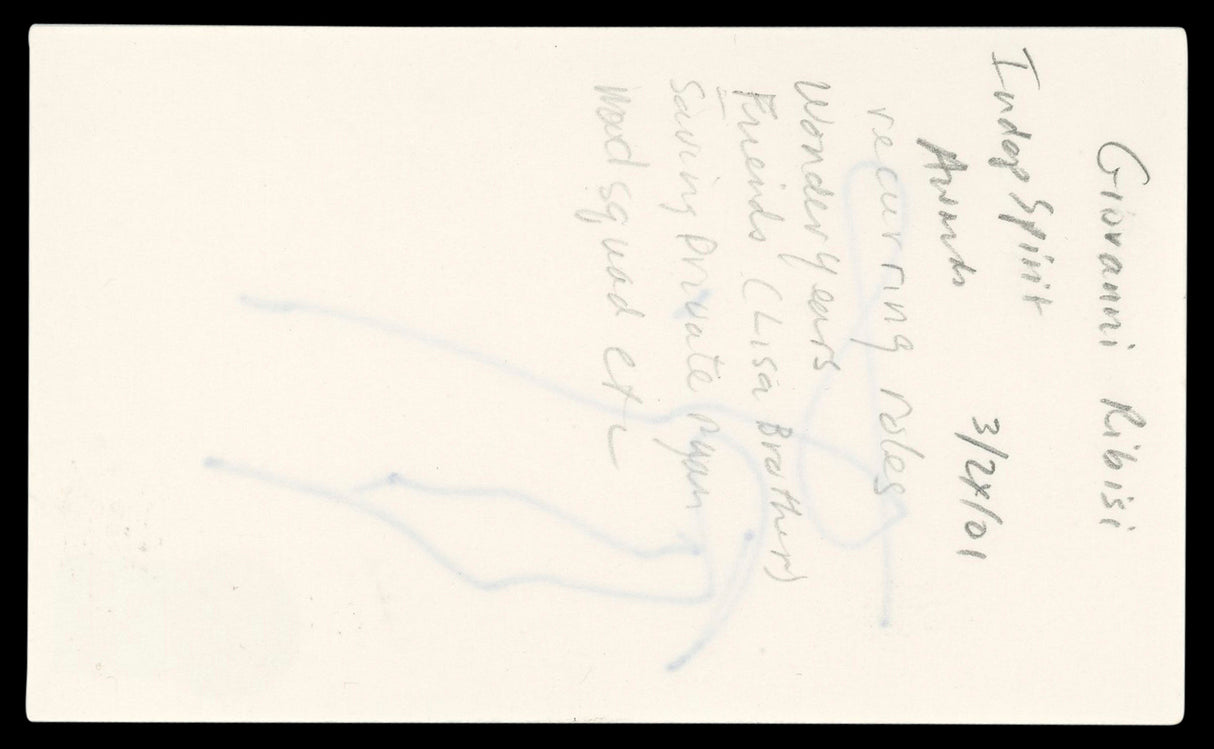 Giovanni Ribisi
Indep Spirit
Awards 3/24/01
recurring roles
Wonder Years
Friends (Lisa Brother)
Saving Private Ryan
Mod squad etc